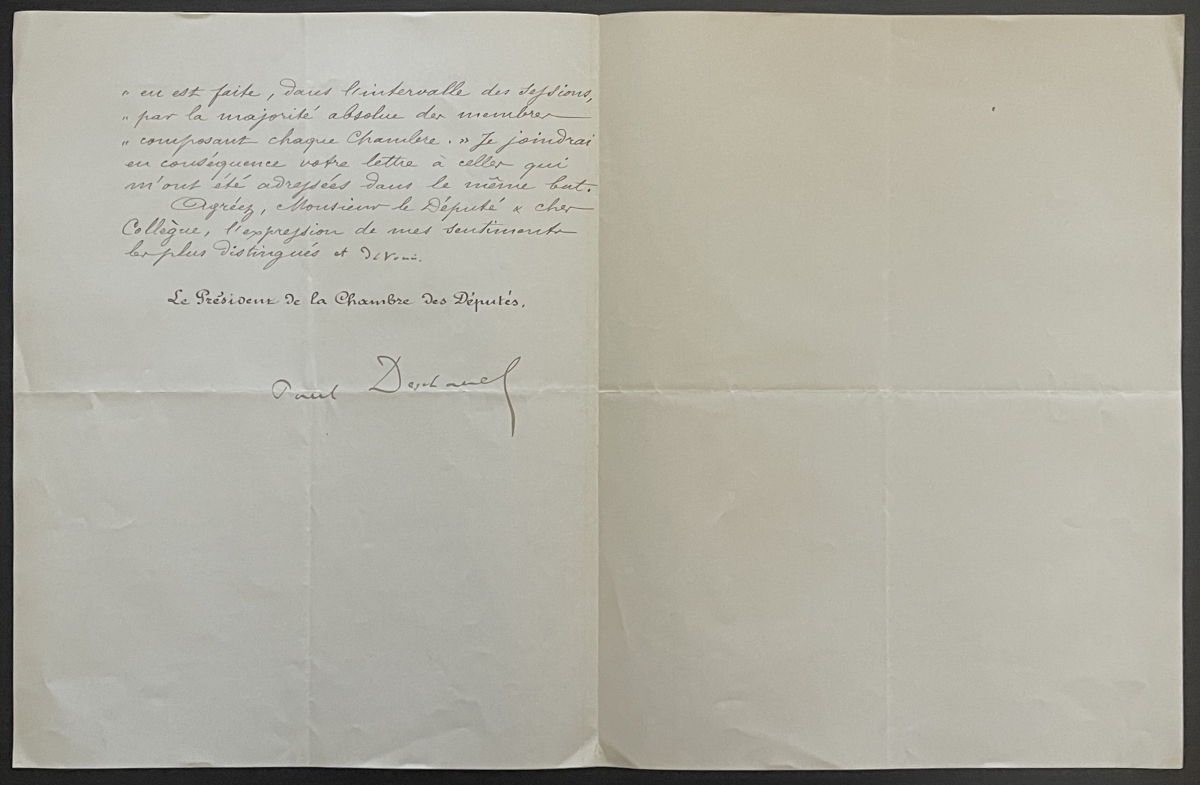 « en est faite, dans l'intervalle des sessions,
« par la majorité absolue des membres
« composant chaque Chambre. » Je joindrai
en conséquence votre lettre à celles qui
m'ont été adressées dans le même but.
Agréez, Monsieur le Député & cher
Collègue, l'expression de mes sentiments
les plus distingués et dévoués.
Le Président de la Chambre des Députés,
Paul Deschanel